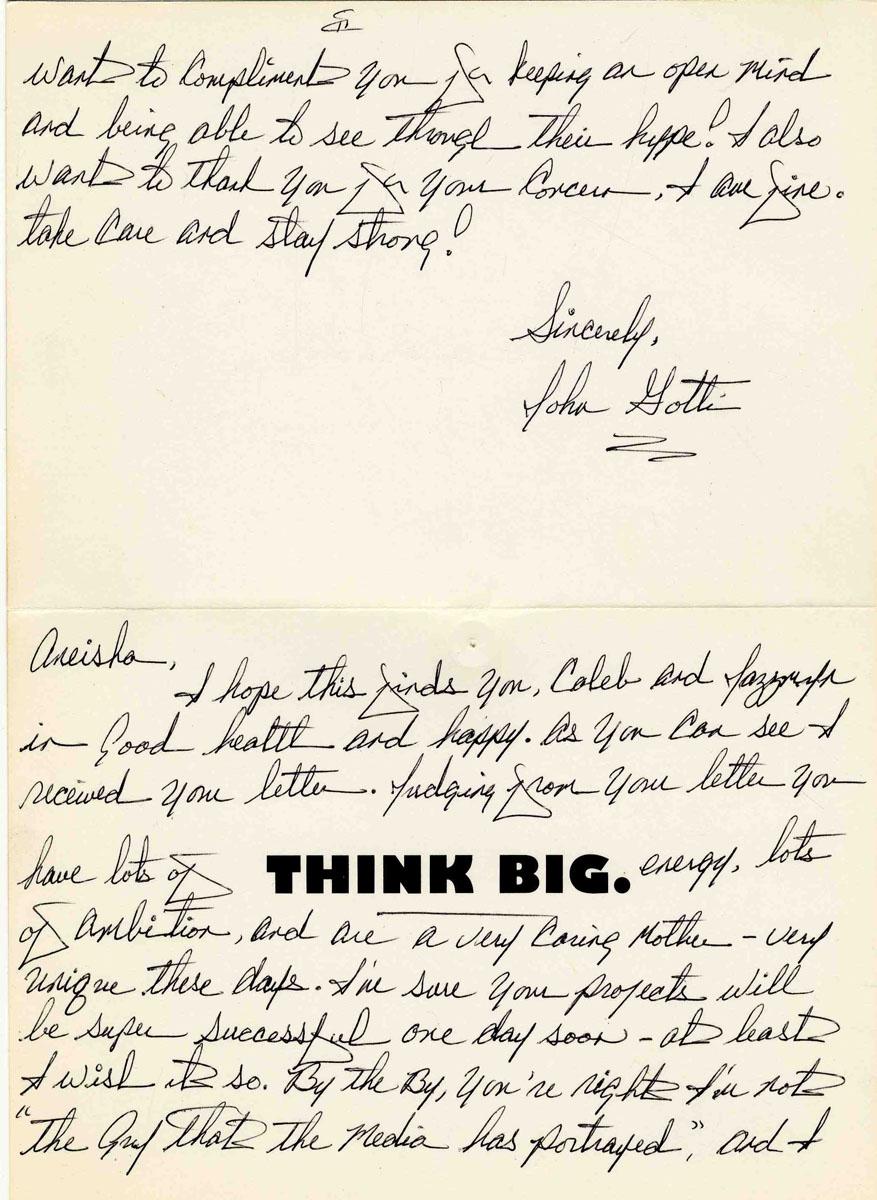 want to compliment you for keeping an open mind
and being able to see through their hyppe! I also
want to thank you for your concern, I am fine.
take care and stay strong!
Sincerely,
John Gotti
Aneisha,
I hope this finds you, Caleb and Jazzmyn
in good health and happy. As you can see I
received your letter. Judging from your letter you
have lots of THINK BIG. energy, lots
of ambition, and are a very caring mother – very
unique these days. I'm sure your projects will
be super successful one day soon – at least
I wish it so. By the By, you're right I'm not
"the guy that the media has portrayed", and I